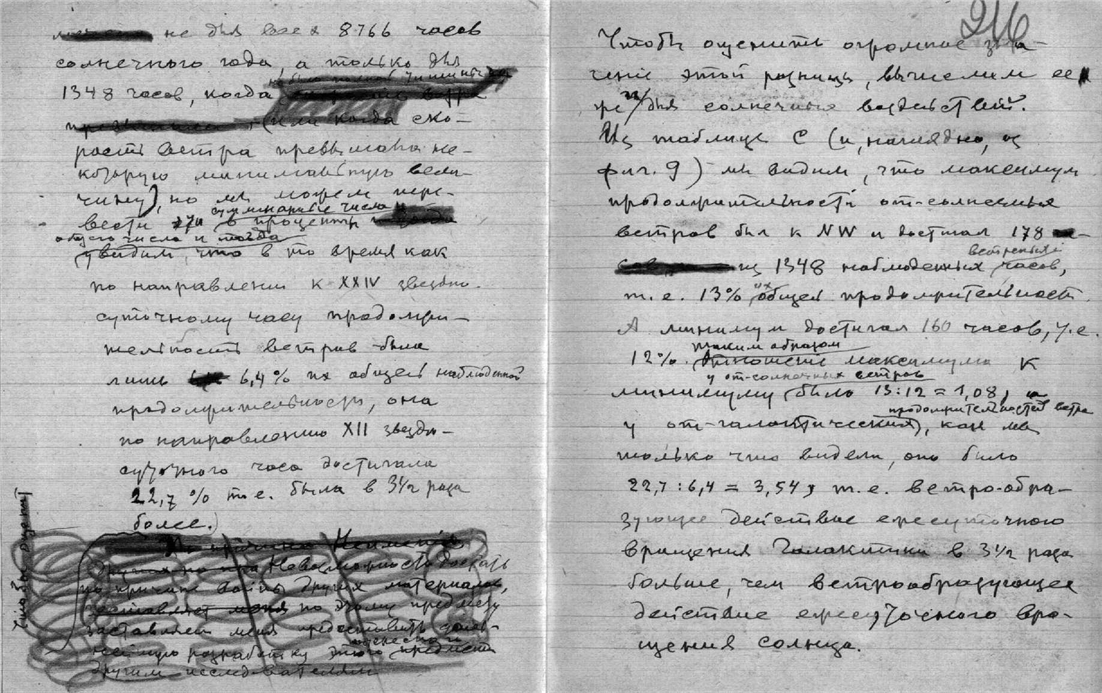 не для всех 8.766 часов
солнечного года, а только для
1348 часов, когда
(или когда ско-
рость ветра превышала не-
которую минимальную вели-
чину), но мы можем пере-
вести эти суммарные числа в проценты
общего числа и тогда
увидим, что в то время как
по направлению к XXIV звездно-
суточному часу продолжи-
тельность ветров была
лишь 6,4% их общей наблюденной
продолжительности, она
по направлению XII звездно-
суточного часа достигала
22,7 % т.е. была в 3½ раза
более.)
По причине
Невозможность достать
по причине войны других материалов
по этому предмету
заставляет меня предоставить
разработку этого предмета
другим исследователям
216
Чтобы оценить огромное зна-
чение этой разницы, вычислим ее
и для солнечных воздействий.
Из таблицы С (и, наглядно, из
фиг. 9) мы видим, что максимум
продолжительности от-солнечных
ветров был к NW и достигал 178
из 1348 наблюденных ветреных часов,
т.е. 13% их общей продолжительности.
А минимум достигал 160 часов, т.е.
12%. Таким образом отношение максимума к
минимуму у от-солнечных ветров было 13:12 = 1,08, а
у от-галактических, продолжительностей ветра как мы
только что видели, оно было
22,7 : 6,4 = 3,54, т.е. ветро-обра-
зующее действие ежесуточного
вращения Галактики в 3½ раза
больше, чем ветрообразующее
действие ежесуточного вра-
щения солнца.